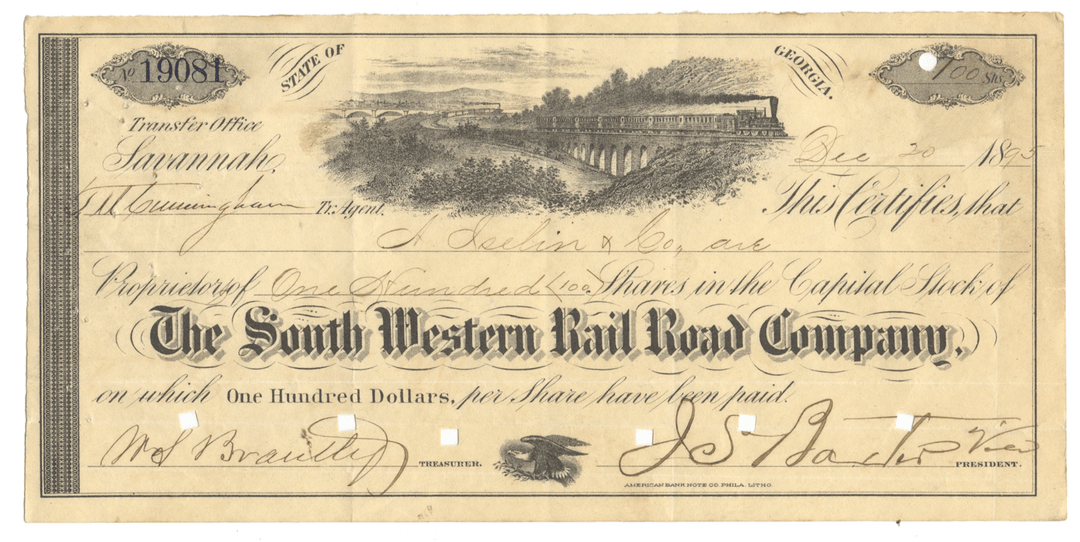 No 19081
STATE OF
GEORGIA.
100 Shs
Transfer Office
Savannah,
Dec 20 1895
T M Cunningham Tr. Agent.
This Certifies, that
A Iselin & Co, are
Proprietors of One Hundred (100) Shares in the Capital Stock of
The South Western Rail Road Company,
on which One Hundred Dollars, per Share have been paid.
W S Brantly TREASURER.
J S Baxter Vice PRESIDENT.
AMERICAN BANK NOTE CO. PHILA. LITHO.